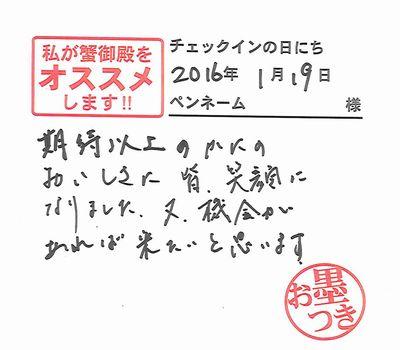 私が蟹御殿を
オススメ
します!!
チェックインの日にち
2016年 1月19日
ペンネーム 様
期待以上のかにの
おいしさに皆、笑顔に
なりました。又、機会が
あれば来たいと思います
お墨つき